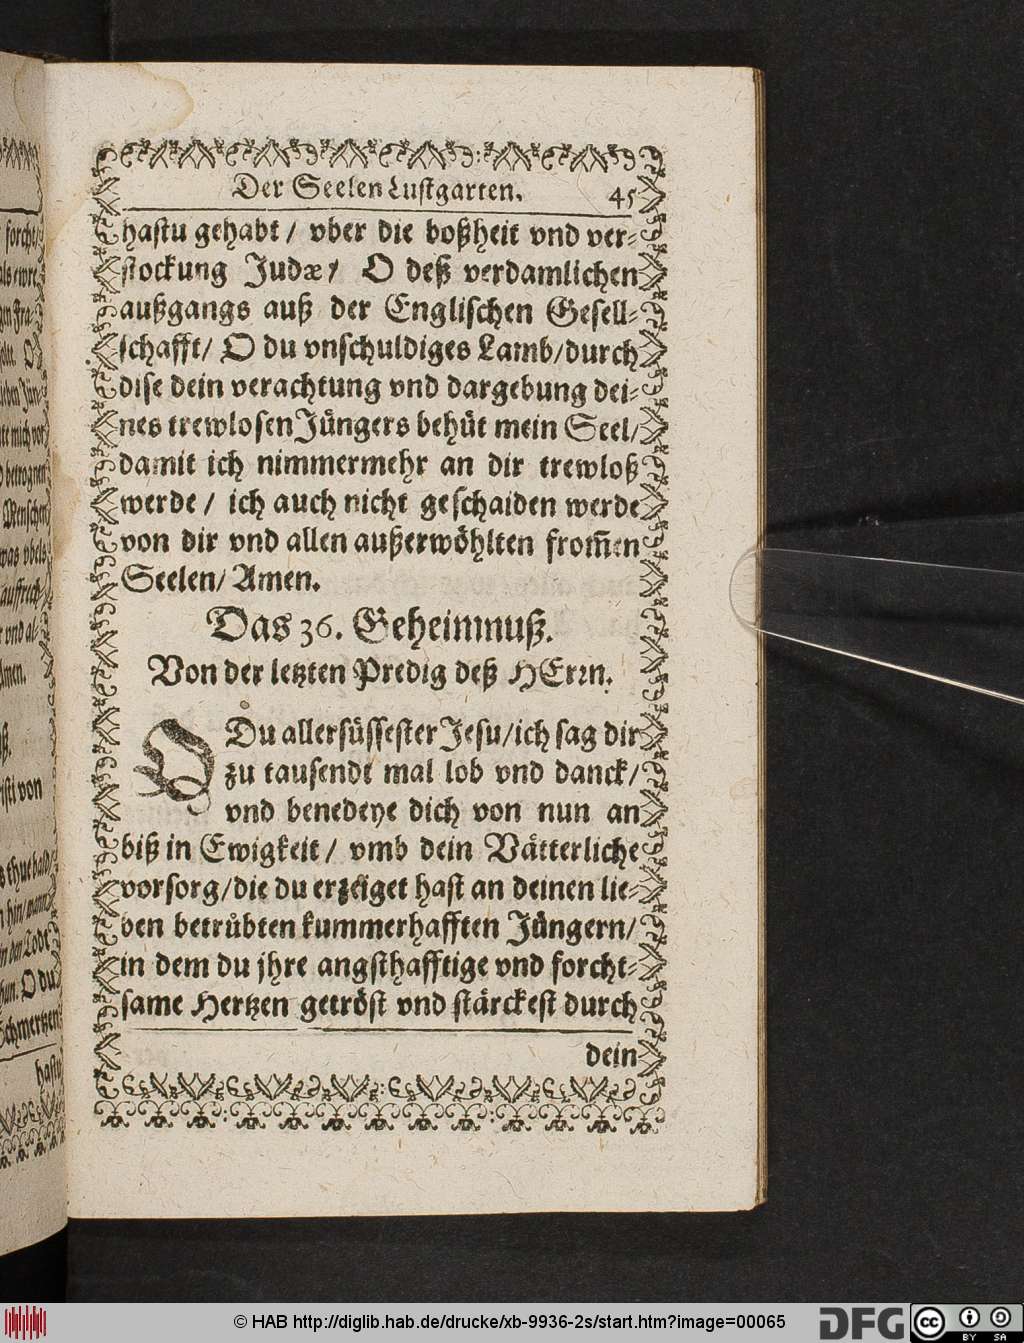 Der Seelen Lustgarten. 45
hastu gehabt / vber die boßheit vnd ver-
stockung Judæ / O deß verdamlichen
außgangs auß der Englischen Gesell-
schafft / O du vnschuldiges Lamb / durch
dise dein verachtung vnd dargebung dei-
nes trewlosen Jüngers behüt mein Seel /
damit ich nimmermehr an dir trewloß
werde / ich auch nicht geschaiden werde
von dir vnd allen außerwöhlten from̃en
Seelen / Amen.
Das 36. Geheimnuß.
Von der letzten Predig deß HErrn.
O Du allersüssester Jesu / ich sag dir
zu tausendt mal lob vnd danck /
vnd benedeye dich von nun an
biß in Ewigkeit / vmb dein Vätterliche
vorsorg / die du erzeiget hast an deinen lie-
ben betrübten kummerhafften Jüngern /
in dem du jhre angsthafftige vnd forcht-
same Hertzen getröst vnd stärckest durch
dein
forcht /
betrognen
Menschen
was vbels
Amen.
Christi von
thut bald
hin / wann
den Todt
O du
Schmertzen
hastu
© HAB http://diglib.hab.de/drucke/xb-9936-2s/start.htm?image=00065
DFG
cc
BY SA